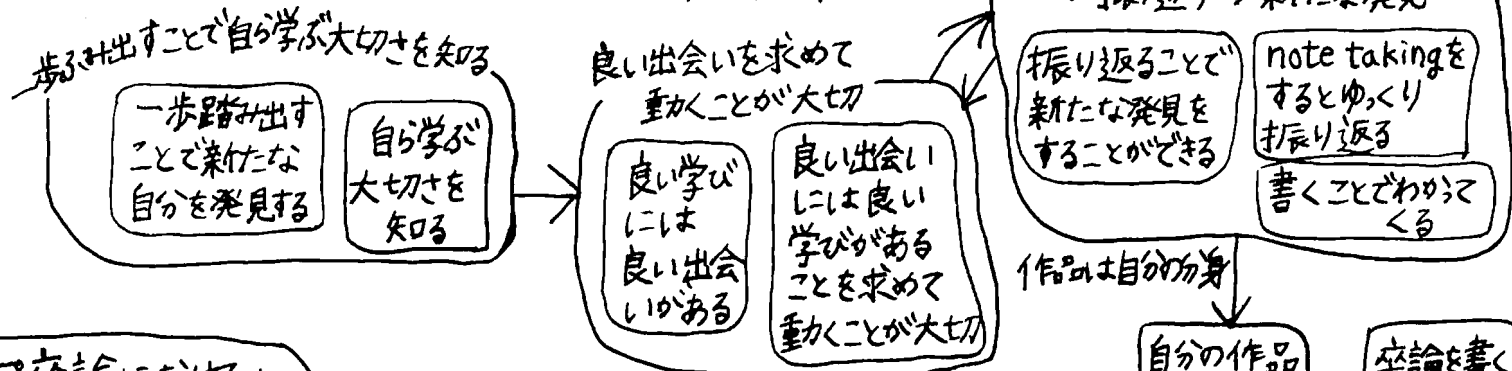 歩ふみ出すことで自ら学ぶ大切さを知る
一歩踏み出す
ことで新たな
自分を発見する
自ら学ぶ
大切さを
知る
良い出会いを求めて
動くことが大切
良い学び
には
良い出会
いがある
良い出会い
には良い
学びがある
ことを求めて
動くことが大切
振り返ることで
新たな発見を
することができる
note takingを
するとゆっくり
振り返る
書くことでわかって
くる
作品は自分の分身
自分の作品
卒論を書く